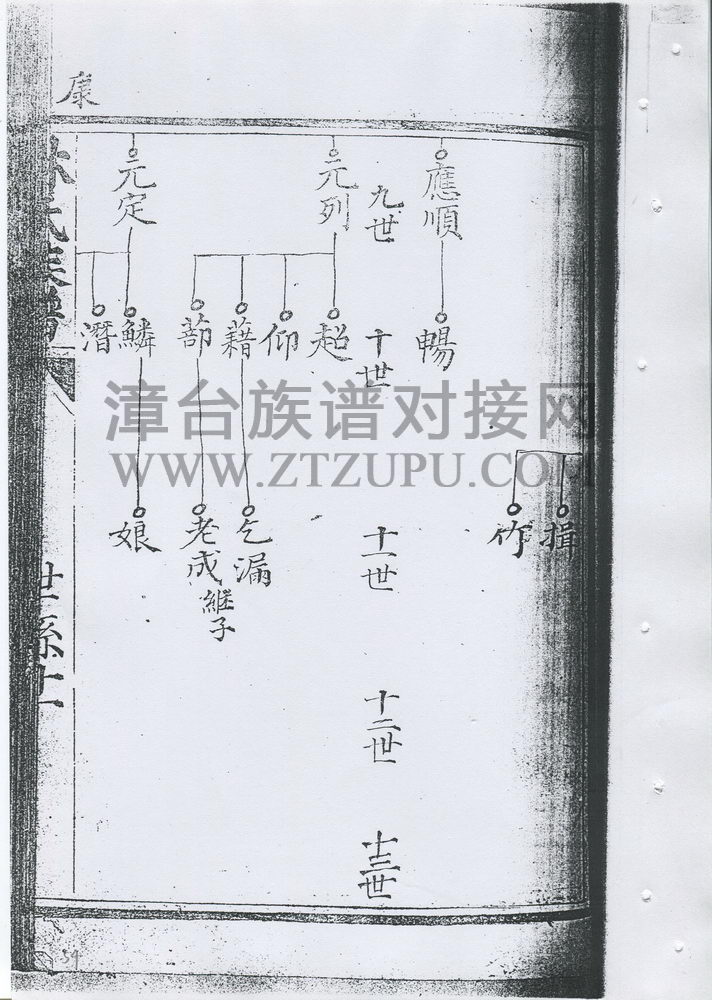 康
應順
九世
元列
元定
暢
十世
超
仰
藉
蔀
鱗
潛
揖
竹
十一世
乞漏
老成
継子
娘
十二世
十三世
林氏族譜
世系十一
漳台族谱对接网
WWW.ZTZUPU.COM
59